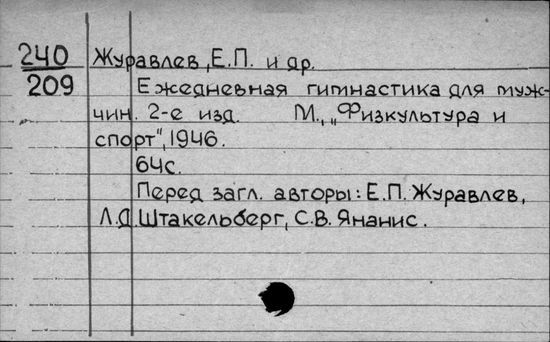 240 Журавлев, Е.П. и др.
209 Ежедневная гимнастика для муж-
чин. 2-е изд. М., „Физкультура и
спорт", 1946.
64с.
Перед загл. авторы: Е.П. Журавлев,
Л.Д. Штакельберг, С.В. Янанис.